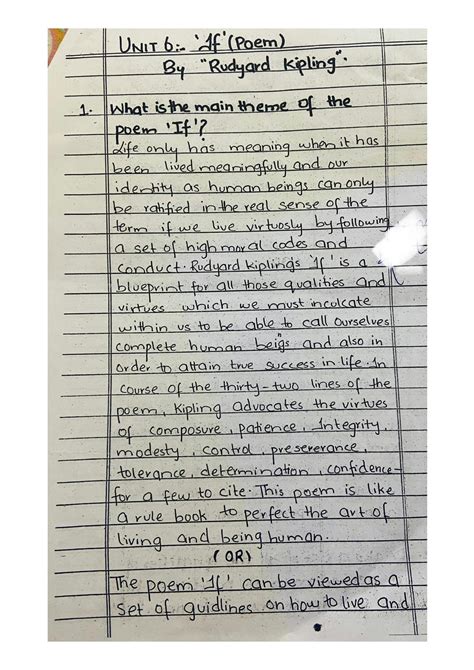 UNIT 6:- 'If' (Poem)
By "Rudyard Kipling".
1. What is the main theme of the
poem 'If'?
Life only has meaning when it has
been lived meaningfully and our
identity as human beings can only
be ratified in the real sense of the
term if we live virtuosly by following
a set of high moral codes and
conduct. Rudyard kiplings 'If' is a
blueprint for all those qualities and
virtues which we must inculcate
within us to be able to call ourselves
complete human beigns and also in
order to attain true success in life. In
course of the thirty-two lines of the
poem, Kipling advocates the virtues
of composure, patience, Integrity,
modesty, control, preservance,
tolerance, determination, confidence-
for a few to cite. This poem is like
a rule book to perfect the art of
living and being human.
(OR)
The poem 'If' can be viewed as a
set of guidlines on how to live and